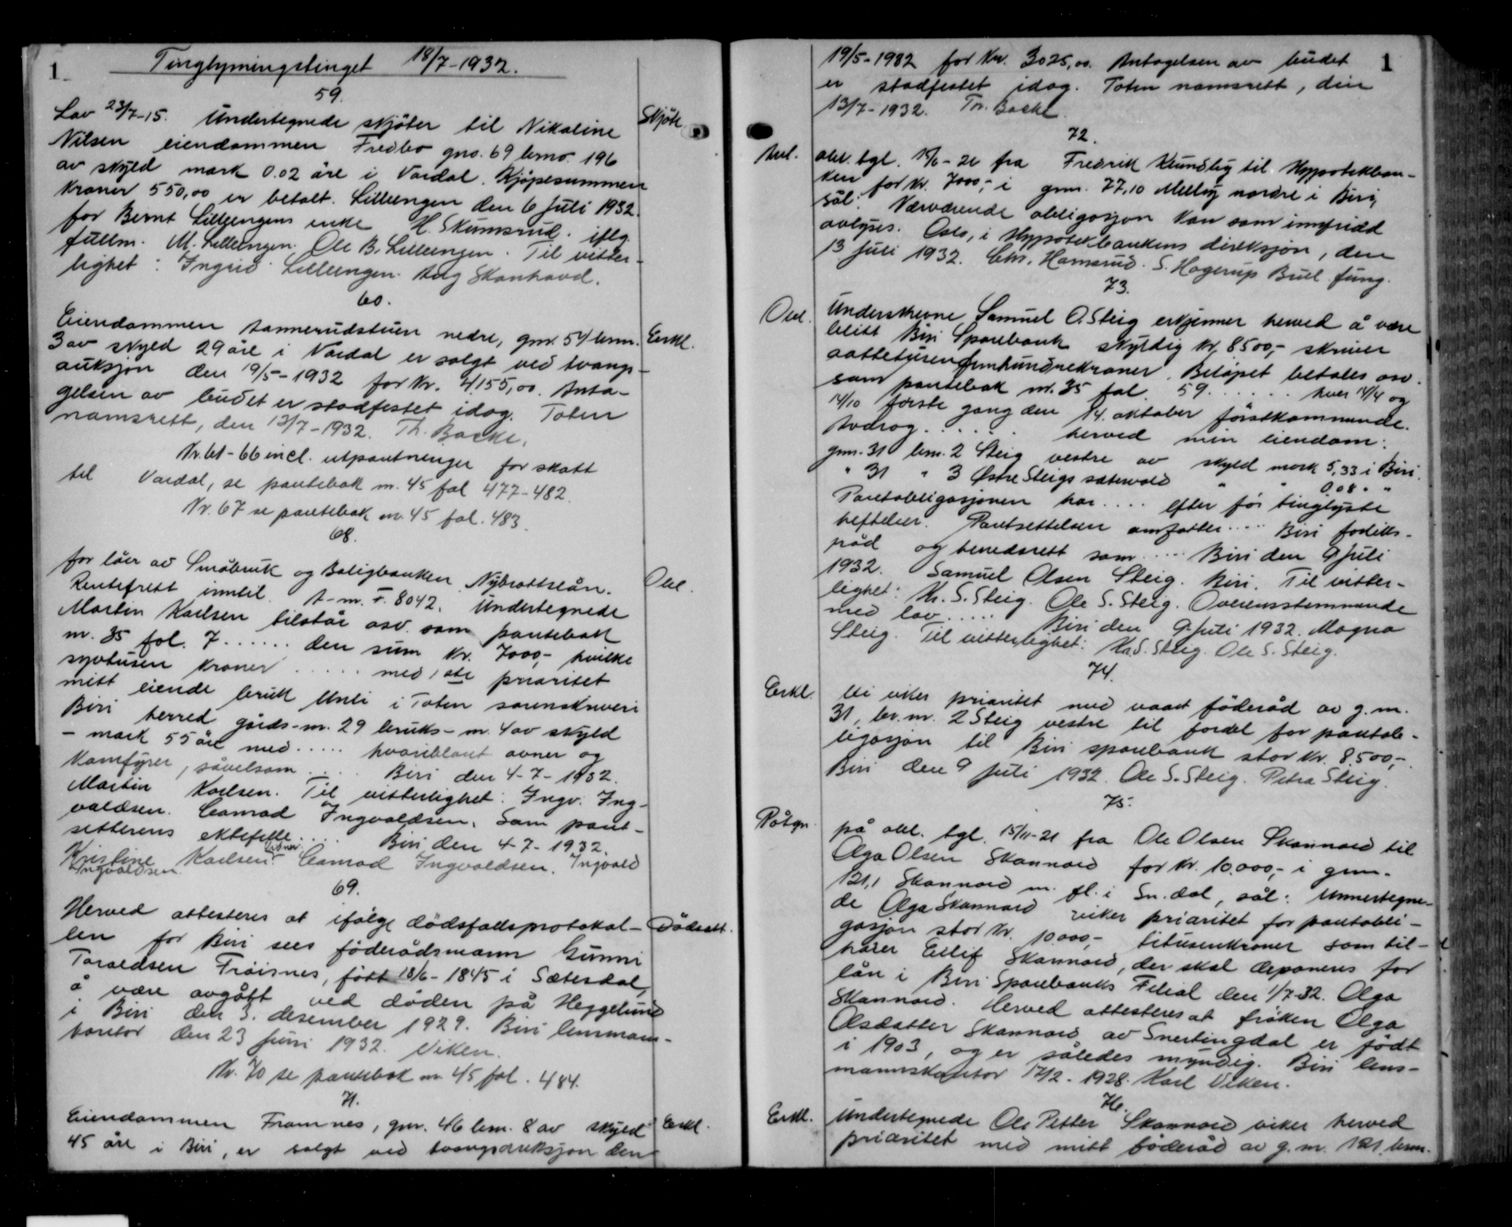 1
Tinglysningstinget 18/7-1932.
59.
Lav 23/7-15. Undertegnede skjöter til Nikoline Skjöte
Nilsen eiendommen Fredbo gno. 69 brno. 196
av skyld mark 0.02 åre i Vardal. Kjöpesummen
kroner 550,00 er betalt. Lilleengen den 6 juli 1932.
for Bernt Lilleengens enke H. Skumsrud. iflg.
fullm. M. Lilleengen. Ole B. Lilleengen. Til vitter-
lighet: Ingrid Lilleengen. Aug Skonhovd.
60.
Eiendommen Annerudstuen nedre, gnr. 54 brnr. Erkl.
3 av skyld 29 åre i Vardal er solgt ved tvangs-
auksjon den 19/5-1932 for kr. 4155,00. Anta-
gelsen av budet er stadfestet idag. Toten
namsrett, den 13/7-1932. Th. Backe.
Nr. 61-66 incl. utpantninger for skatt
til Vardal, se pantebok nr. 45 fol 477-482.
Nr. 67 se pantebok nr. 45 fol. 483.
68.
for lån av Småbruk og Boligbanken Nybrottslån. Obl.
Rentefritt inntil A-nr. F. 8042. Undertegnede
Martin Karlsen tilstår osv. som pantebok
nr. 35 fol. 7 ...... den sum kr. 7000,- hvilke
syvtusen kroner ..... med 1ste prioritet
mitt eiende bruk Unli i Toten sorenskriveri
Biri herred gårds-nr. 29 bruks-nr. 4 av skyld
- mark 55 åre med ..... hvoriblant ovner og
komfyrer, såvelsom ... Biri den 4-7-1932.
Martin Karlsen. Til vitterlighet: Ingv. Ing-
valdsen. Conrad Ingvoldsen. Som pant-
setterens ektefelle ... Biri den 4-7-1932.
Kristine Karlsen. Vidner: Conrad Ingvoldsen. Ingvald
Ingvaldsen.
69.
Herved attesteres at ifölge dödsfallsprotokol- Dödsatt.
len for Biri sees föderådsmann Gunni
Taraldsen Fröisnes, född 18/6-1845 i Sætesdal,
å være avgått ved döden på Heggelund
i Biri den 3. desember 1929. Biri lensmans-
kontor den 23 juni 1932. Viken.
Nr. 70 se pantebok nr 45 fol. 484.
71.
Eiendommen Framnes, gnr. 46 brnr. 8 av skyld Erkl.
45 åre i Biri, er solgt ved tvangsauksjon den
1
19/5-1932 for kr. 3025,00. Antagelsen av budet
er stadfestet idag. Toten namsrett, den
13/7-1932. Th. Backe.
72.
Avl. obl. tgl. 15/6-26 fra Fredrik Kundby til Hypotekban-
ken for kr. 7000,- i gnr. 77,10 Melby nordre i Biri,
sål: Nærværende obligasjon kan som innfridd
avlyses. Oslo, i Hypotekbankens direksjon, den
13 juli 1932. Chr. Hamsrud. S. Hagerup Bull fung.
73.
Obl. Underskrevne Samuel O. Steig erkjenner herved å være
blitt Biri Sparebank skyldig kr. 8500,- skriver
aattetusenfemhundrekroner. Belöpet betales osv.
som pantebok nr. 35 fol. 59 ..... hver 14/4 og
14/10 förste gang den 14. oktober förstkommende.
Avdrag ..... herved min eiendom:
gnr. 31 brn. 2 Steig vestre av skyld mark 5,33 i Biri.
" 31 " 3 Östre Steigs sætervold " " 0,08 " "
Pantobligasjonen har .... efter för tinglyste
heftelser. Pantsettelsen omfatter .... Biri forliks-
råd og herredsrett som .... Biri den 9 juli
1932. Samuel Olsen Steig. Biri. Til vitter-
lighet: Kr. S. Steig. Ole S. Steig. Overensstemmende
med lov ..... Biri den 9 juli 1932. Magna
Steig. Til vitterlighet: Kr. S. Steig. Ole S. Steig.
74.
Erkl. Vi viker prioritet med vaart föderåd av g.nr.
31, br.nr. 2 Steig vestre til fordel for pantob-
ligasjon til Biri sparebank stor kr. 8.500,-.
Biri den 9 juli 1932. Ole S. Steig. Petra Steig.
75.
Påtgn. på obl. tgl. 15/11-21 fra Ole Olsen Skonnord til
Olga Olsen Skonnord for kr. 10.000,- i gnr.
121,1 Skonnord m. fl. i Sn.dal, sål: Undertegne-
de Olga Skonnord viker prioritet for pantobli-
gasjon stor kr. 10000,- titusenkroner som til-
hörer Eilif Skonnord, der skal deponeres for
lån i Biri Sparebanks Filial den 1/7-32. Olga
Skonnord. Herved attesteres at fröken Olga
Olsdatter Skonnord av Snertingdal er födt
i 1903, og er således myndig. Biri lens-
mannskontor 17/2-1928. Karl Viken.
76.
Erkl. Undertegnede Ole Petter Skonnord viker herved
prioritet med mitt föderåd av g.nr. 121, brnr.